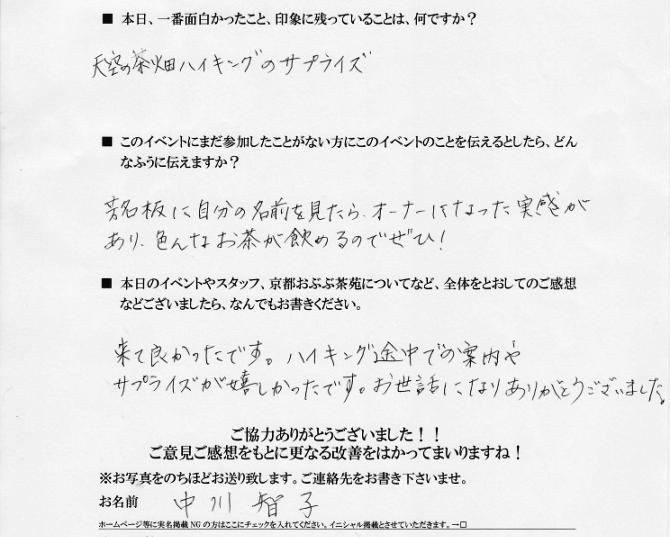 ■ 本日、一番面白かったこと、印象に残っていることは、何ですか？
天空の茶畑ハイキングのサプライズ
■ このイベントにまだ参加したことがない方にこのイベントのことを伝えるとしたら、どん
なふうに伝えますか？
芳名板に自分の名前を見たら、オーナーになった実感が
あり、色んなお茶が飲めるのでぜひ！
■ 本日のイベントやスタッフ、京都おぶぶ茶苑についてなど、全体をとおしてのご感想
などございましたら、なんでもお書きください。
来て良かったです。ハイキング途中での案内や
サプライズが嬉しかったです。お世話になりありがとうございました。
ご協力ありがとうございました！！
ご意見ご感想をもとに更なる改善をはかってまいりますね！
※お写真をのちほどお送り致します。ご連絡先をお書き下さいませ。
お名前 中川智子
ホームページ等に実名掲載NGの方はここにチェックを入れてください。イニシャル掲載とさせていただきます。→□